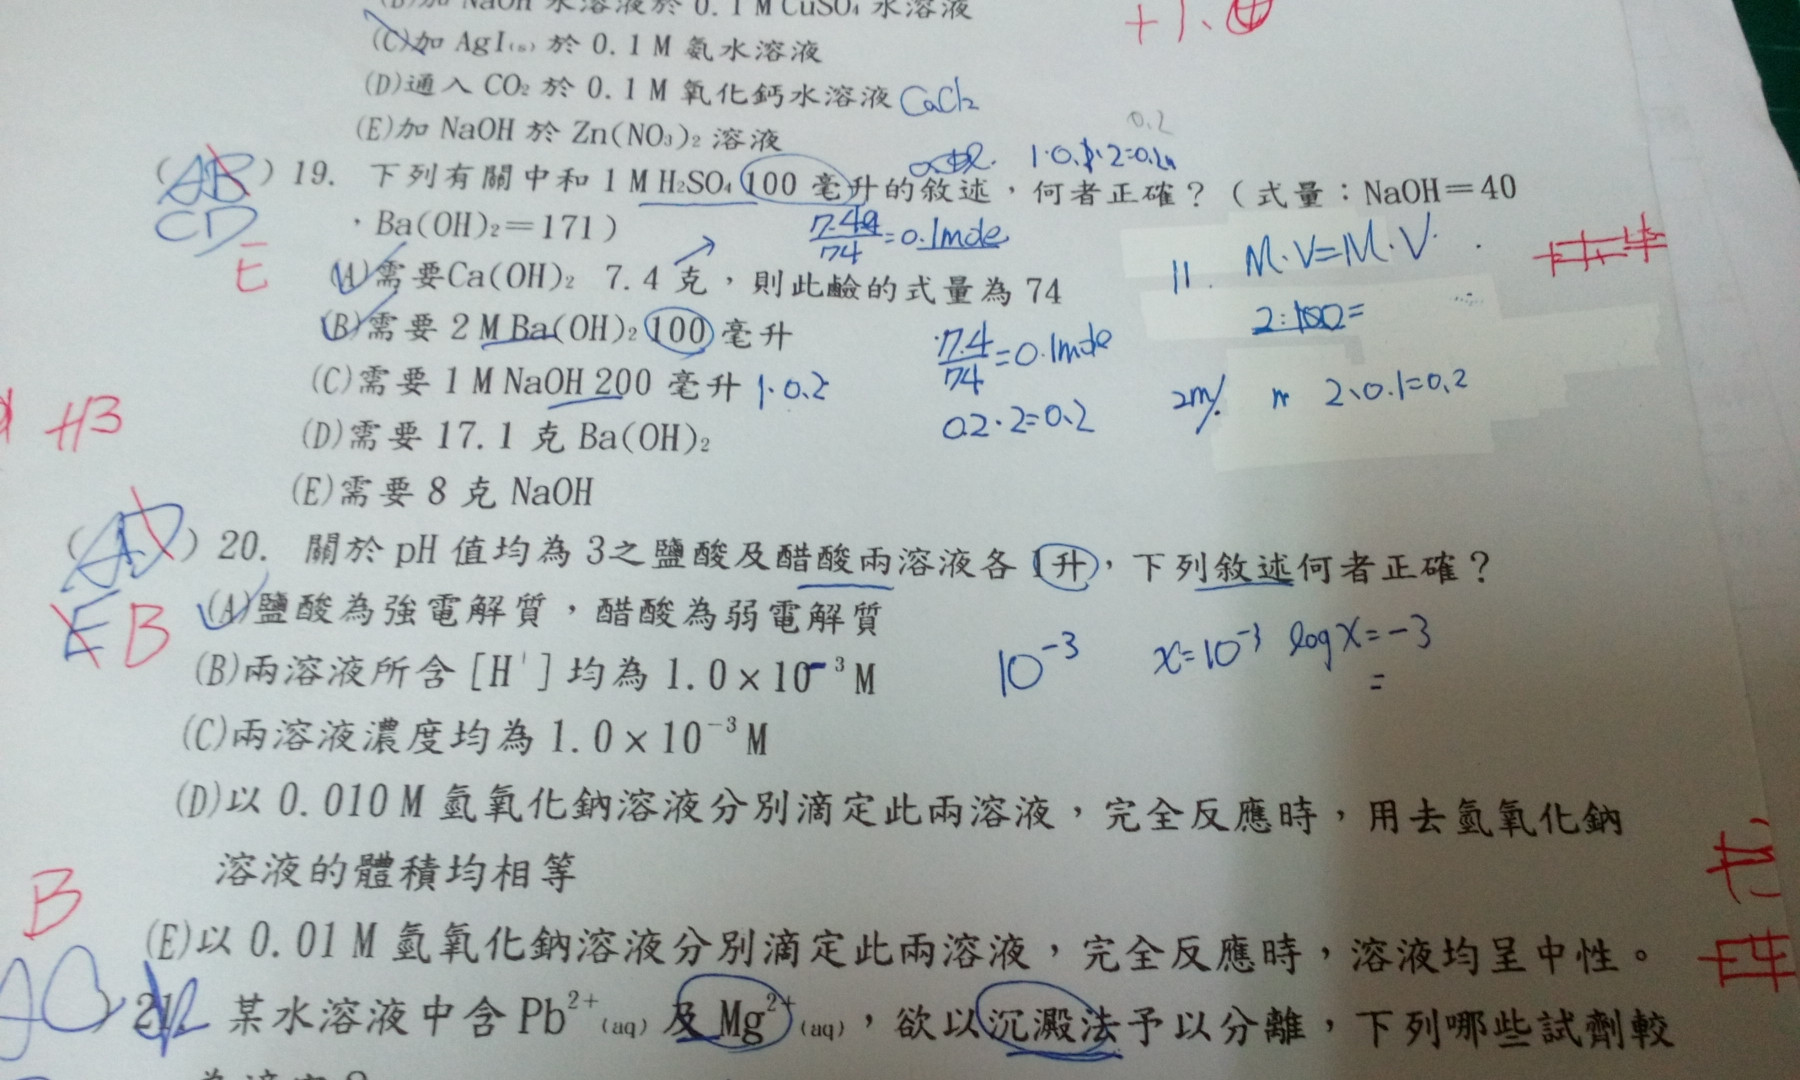 (B)加 NaOH 水溶液於 0.1 M CuSO₄ 水溶液
+1.④
(C)加 AgI₍ₛ₎ 於 0.1 M 氨水溶液
(D)通入 CO₂ 於 0.1 M 氧化鈣水溶液 CaCl₂
(E)加 NaOH 於 Zn(NO₃)₂ 溶液
0.2
1·0.1·2=0.2
(AB) 19. 下列有關中和 1 M H₂SO₄ 100 毫升的敘述,何者正確?(式量:NaOH=40
CD
,Ba(OH)₂=171)
7.4/74=0.1mole
E
M·V=M·V
(A)需要Ca(OH)₂ 7.4 克,則此鹼的式量為 74
2:100=
(B)需要 2 M Ba(OH)₂ 100 毫升
7.4/74=0.1mole
(C)需要 1 M NaOH 200 毫升 1·0.2
0.2·2=0.2
2、0.1=0.2
(D)需要 17.1 克 Ba(OH)₂
(E)需要 8 克 NaOH
(AD) 20. 關於 pH 值均為 3之鹽酸及醋酸兩溶液各 1升,下列敘述何者正確?
E B
(A)鹽酸為強電解質,醋酸為弱電解質
10⁻³ x=10⁻³ log x=-3
=
(B)兩溶液所含 [H⁺] 均為 1.0×10⁻³ M
(C)兩溶液濃度均為 1.0×10⁻³ M
(D)以 0.010 M 氫氧化鈉溶液分別滴定此兩溶液,完全反應時,用去氫氧化鈉
溶液的體積均相等
B
(E)以 0.01 M 氫氧化鈉溶液分別滴定此兩溶液,完全反應時,溶液均呈中性。
21. 某水溶液中含 Pb²⁺₍aq₎ 及 Mg²⁺₍aq₎,欲以沉澱法予以分離,下列哪些試劑較